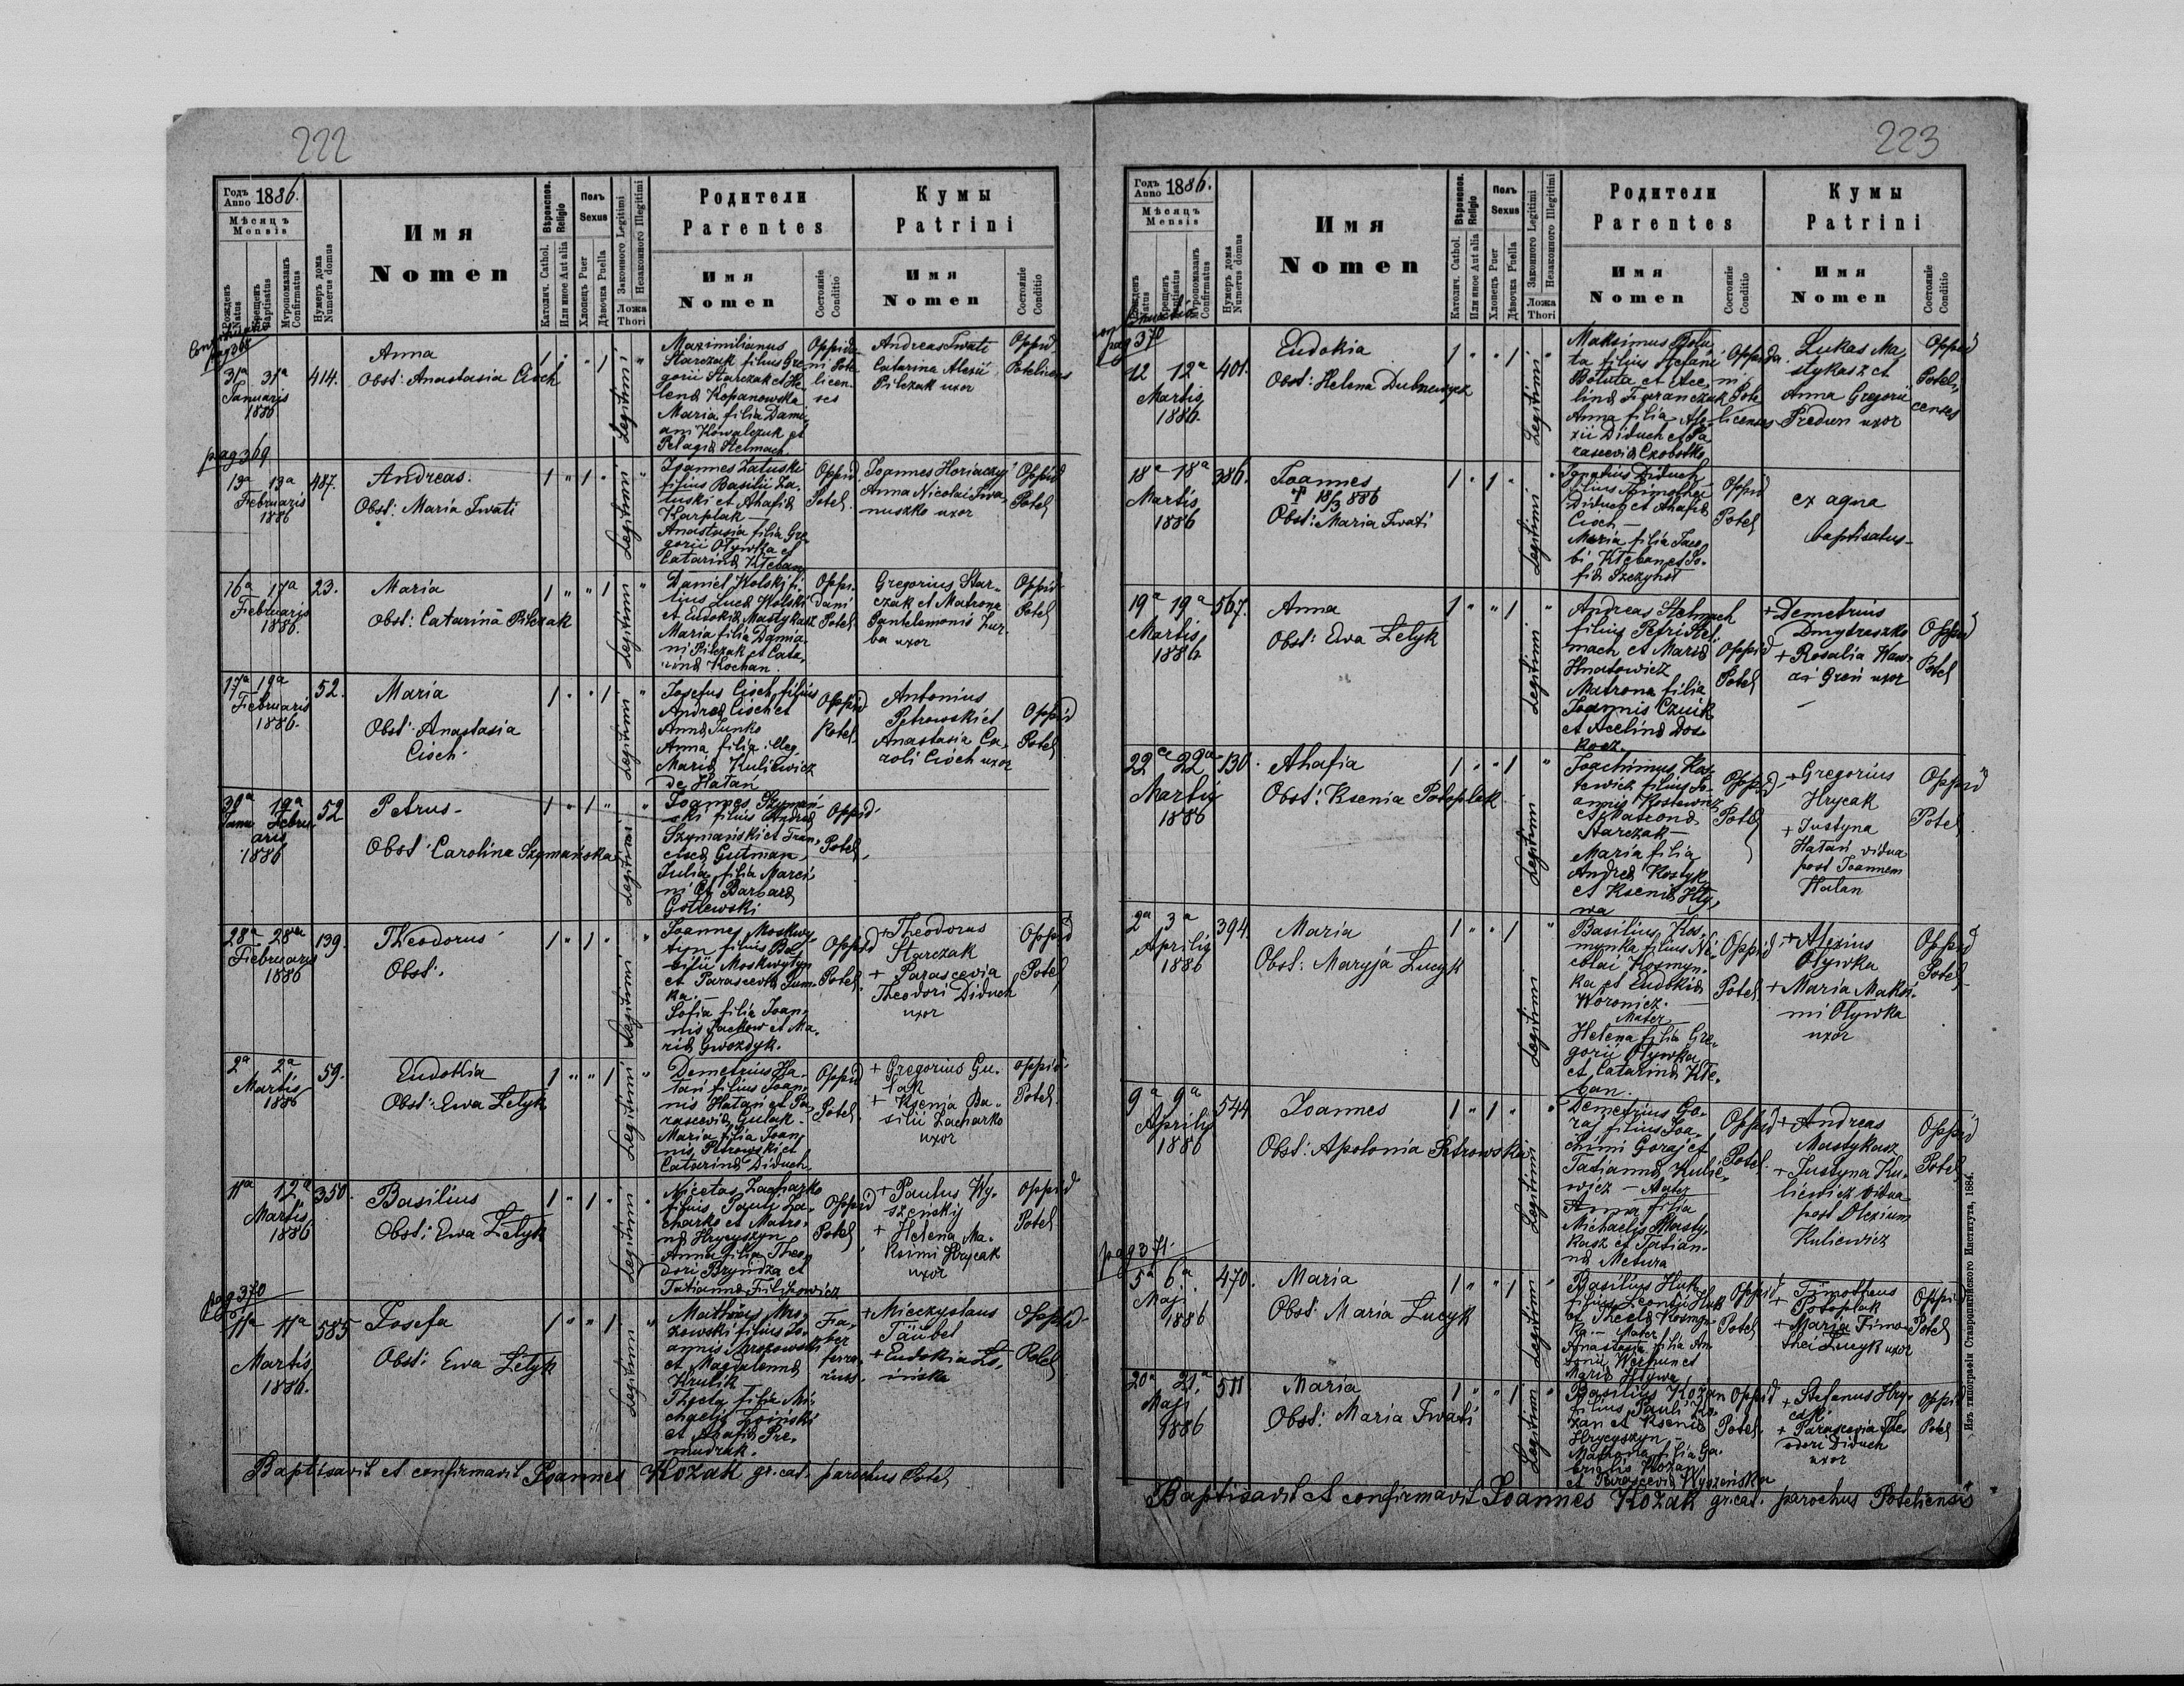 222
Годъ Anno 1886.
Мѣсяцъ
Mensis
Рожденъ Natus
Крещенъ Baptisatus
Мѵропомазанъ Confirmatus
Нумеръ дома Numerus domus
Имя
Nomen
Вѣроиспов. Religio
Католич. Cathol.
Или иное Aut alia
Полъ Sexus
Хлопецъ Puer
Дѣвочка Puella
Законного Legitimi
Незаконного Illegitimi
Ложа Thori
Родители
Parentes
Имя
Nomen
Состояніе Conditio
Кумы
Patrini
Имя
Nomen
Состояніе Conditio
pag 368
31a 31a
Januaris
1886
414.
Anna
Obst: Anastasia Cisch
1 " " 1 "
Legitimi
Maximilianus
Starczak filius Gre
gorii Starczak et He
lenä Kopanowska
Maria filia Dami
ani Kowalczuk et
Pelagiä Stelmach
Oppida
ni Pote
licen
ses
Andreas Iwati
Catarina Alexii
Pilczak uxor
Oppid
Potelicens
pag 369
13a 13a
Februaris
1886
487.
Andreas.
Obst: Maria Iwati
1 " 1 " "
Legitimi
Joannes Zatuski
filius Basilii Za
tuski et Ahafiä
Karplak
Anastasia filia Gre
gorii Otywka et
Catarinä Kteban
Oppid
Potel.
Joannes Horiaczyj
Anna Nicolai Iwa
nuszko uxor
Oppid
Potel
16a 17a
Februaris
1886.
23.
Maria
Obst: Catarina Pilczak
1 " " 1 "
Legitimi
Daniel Wolski fi
lius Lucä Wolski
et Eudokiä Mastykasz
Maria filia Damia
ni Pilczak et Cata
rinä Kochan.
Oppi
dani
Potel
Gregorius Star
czak et Matrona
Pantelemonis Zur
ba uxor
Oppid
Potel
17a 19a
Februaris
1886.
52.
Maria
Obst: Anastasia
Cisch
1 " " 1 "
Legitimi
Josefus Cisch filius
Andreä Cisch et
Annä Junko
Anna filia illeg.
Mariä Kuliewicz
de Hatan
Oppid
Potel
Antonius
Petrowski et
Anastasia Ca
roli Cisch uxor
Oppid
Potel
30a 19a
Janu Febru
aris
1886
52
Petrus
Obst: Carolina Szymańska
1 " 1 " "
Legitimi
Joannes Szymań
ski filius Andreä
Szymański et Fran
ciscä Gutman
Julia filia Marci
ni et Barbarä
Gotlewski
Oppid
Potel
28a 28a
Februaris
1886
139.
Theodorus
Obst:
1 " 1 " "
Legitimi
Joannes Moskwy
tyn filius Ba
silii Moskwytyn
et Parasceviä Jum
ka.
Sofia filia Joan
nis Packow et Ma
riä Gwozdyk.
Oppid
Potel
+ Theodorus
Starczak
+ Parascevia
Theodori Diduch
uxor
Oppid
Potel
2a 2a
Martis
1886
59.
Eudokia
Obst: Ewa Letyk
1 " " 1 "
Legitimi
Demetrius Ha
tan filius Joan
nis Hatan et Pa
rasceviä Gulak.
Maria filia Joan
nis Petrowski et
Catarinä Diduch.
Oppid
Potel
+ Gregorius Gu
lak
+ Ksenia Ba
silii Zacharko
uxor
oppid
Potel
11a 12a
Martis
1886
350.
Basilius
Obst: Ewa Letyk
1 " 1 " "
Legitimi
Nicetas Zacharko
filius Pauli Za
charko et Matro
nä Hrycyszyn
Anna filia Theo
dori Bryndza et
Tatiannä Filipowicz
Oppid
Potel
+ Paulus Wy
szenskij
+ Helena Ma
ksimi Hrycak
uxor
Oppid
Potel
pag 370
11a 11a
Martis
1886.
585
Josefa
Obst: Ewa Letyk
1 " " 1 "
Legitimi
Mathias Mro
zowski filius Jo
annis Mrozowski
et Magdalenä
Krulik
Thecla filia Mi
chaelis Łosiński
et Ahafiä Pre
mudrak.
Fa
ber
ferra
rius
+ Mieczysłaus
Täubel
+ Eudokia Ło
sińska
Oppid
Potel
Baptisavit et confirmavit Joannes Kozak gr. cat. parochus Potel
223
Годъ Anno 1886.
Мѣсяцъ
Mensis
Рожденъ Natus
Крещенъ Baptisatus
Мѵропомазанъ Confirmatus
Нумеръ дома Numerus domus
Имя
Nomen
Вѣроиспов. Religio
Католич. Cathol.
Или иное Aut alia
Полъ Sexus
Хлопецъ Puer
Дѣвочка Puella
Законного Legitimi
Незаконного Illegitimi
Ложа Thori
Родители
Parentes
Имя
Nomen
Состояніе Conditio
Кумы
Patrini
Имя
Nomen
Состояніе Conditio
pag 370
12 12a
Martis
1886.
401.
Eudokia
Obst: Helena Dubnewycz
1 " " 1 "
Legitimi
Maksimus Botu
ta filius Stefani
Botuta et Ace
linä Faranczuk
Anna filia Ale
xii Diduch et Pa
rasceviä Czobotko
Oppida
ni
Pote
licenses
Lukas Ma
stykasz et
Anna Gregorii
Predun uxor
Oppid
Poteli
censes
18a 18a
Martis
1886
386.
Joannes
+ 18/3 886
Obst: Maria Iwati
1 " 1 " "
Legitimi
Ignatius Diduch
filius Timothei
Diduch et Ahafiä
Cioch
Maria filia Jaco
bi Kteban et So
fiä Szczyhot
Oppid
Potel
ex aqua
baptisatus
19a 19a
Martis
1886
567.
Anna
Obst: Ewa Letyk
1 " " 1 "
Legitimi
Andreas Stelmach
filius Petri Stel
mach et Mariä
Hnatowicz
Matrona filia
Joannis Czuik
et Acelinä Dos
kocz.
Oppid
Potel
+ Demetrius
Dmytraszko
+ Rosalia Waw
ri Groń uxor
Oppid
Potel
22a 22a
Martis
1886
130.
Ahafia
Obst: Ksenia Potoplak
1 " " 1 "
Legitimi
Joachimus Kos
tewicz filius Jo
annis Kostewicz
et Matronä
Starczak
Maria filia
Andreä Kostyk
et Kseniä Hty
wa
Oppid
Potel
+ Gregorius
Hrycak
+ Justyna
Hatan vidua
post Joannem
Hatan
Oppid
Potel
2a 3a
Aprilis
1886
394.
Maria
Obst: Maryja Lucyk
1 " " 1 "
Legitimi
Basilius Kos
mynka filius Ni
colai Kosmyn
ka et Eudokiä
Woronicz.
Mater
Helena filia Gre
gorii Otywka
et Catarinä Kte
ban.
Oppid
Potel
+ Alexius
Otywka
+ Maria Maksi
mi Otywka
uxor
Oppid
Potel
9a 9a
Aprilis
1886
544
Joannes
Obst: Apolonia Petrowska
1 " 1 " "
Legitimi
Demetrius Go
raj filius Joa
chimi Goraj et
Tatiannä Kulie
wicz - Mater
Anna filia
Michaelis Masty
kasz et Tatian
nä Metura
Oppid
Potel
+ Andreas
Mastykasz
+ Justyna Ku
liewicz vidua
post Olexium
Kuliewicz
Oppid
Potel
pag 371.
5a 6a
Maji
1886
470.
Maria
Obst: Maria Lucyk
1 " " 1 "
Legitimi
Basilius Huk
filius Leontii Huk
et Theclä Kosmyn
ka. - Mater
Anastasia filia An
tonii Werhun et
Mariä Htywa
Oppid
Potel
+ Timotheus
Potoplak
+ Maria Timo
thei Lucyk uxor
Oppid
Potel
20a 21a
Maji
1886
511
Maria
Obst: Maria Iwati
1 " " 1 "
Legitimi
Basilius Kozan
filius Pauli Ko
zan et Kseniä
Hrycyszyn
Matrona filia Ga
brielis Kozan
et Parasceviä Wyszeńska
Oppid
Potel
+ Stefanus Hry
cak
+ Parascevia The
odori Diduch
uxor
Oppid
Potel
Baptisavit et confirmavit Joannes Kozak gr. cat. parochus Poteliensis
Изъ типографіи Ставропигійского Института, 1884.